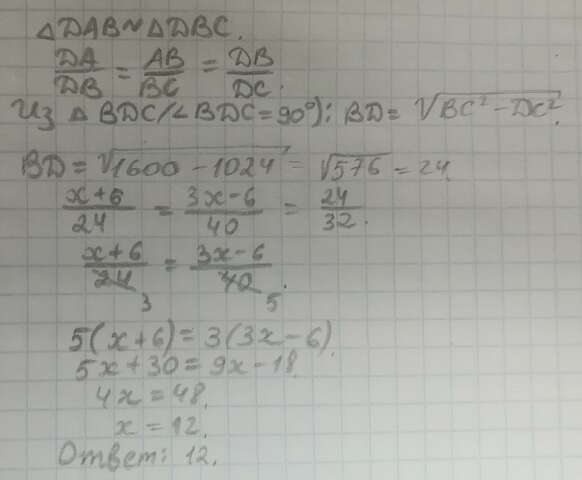 △DAB ~ △DBC.
DA/DB = AB/BC = DB/DC.
Из △BDC (∠BDC = 90°): BD = √(BC² - DC²).
BD = √(1600 - 1024) = √576 = 24.
(x+6)/24 = (3x-6)/40 = 24/32.
(x+6)/24 3 = (3x-6)/40 5.
5(x+6) = 3(3x-6).
5x+30 = 9x-18.
4x = 48.
x = 12.
Ответ: 12.